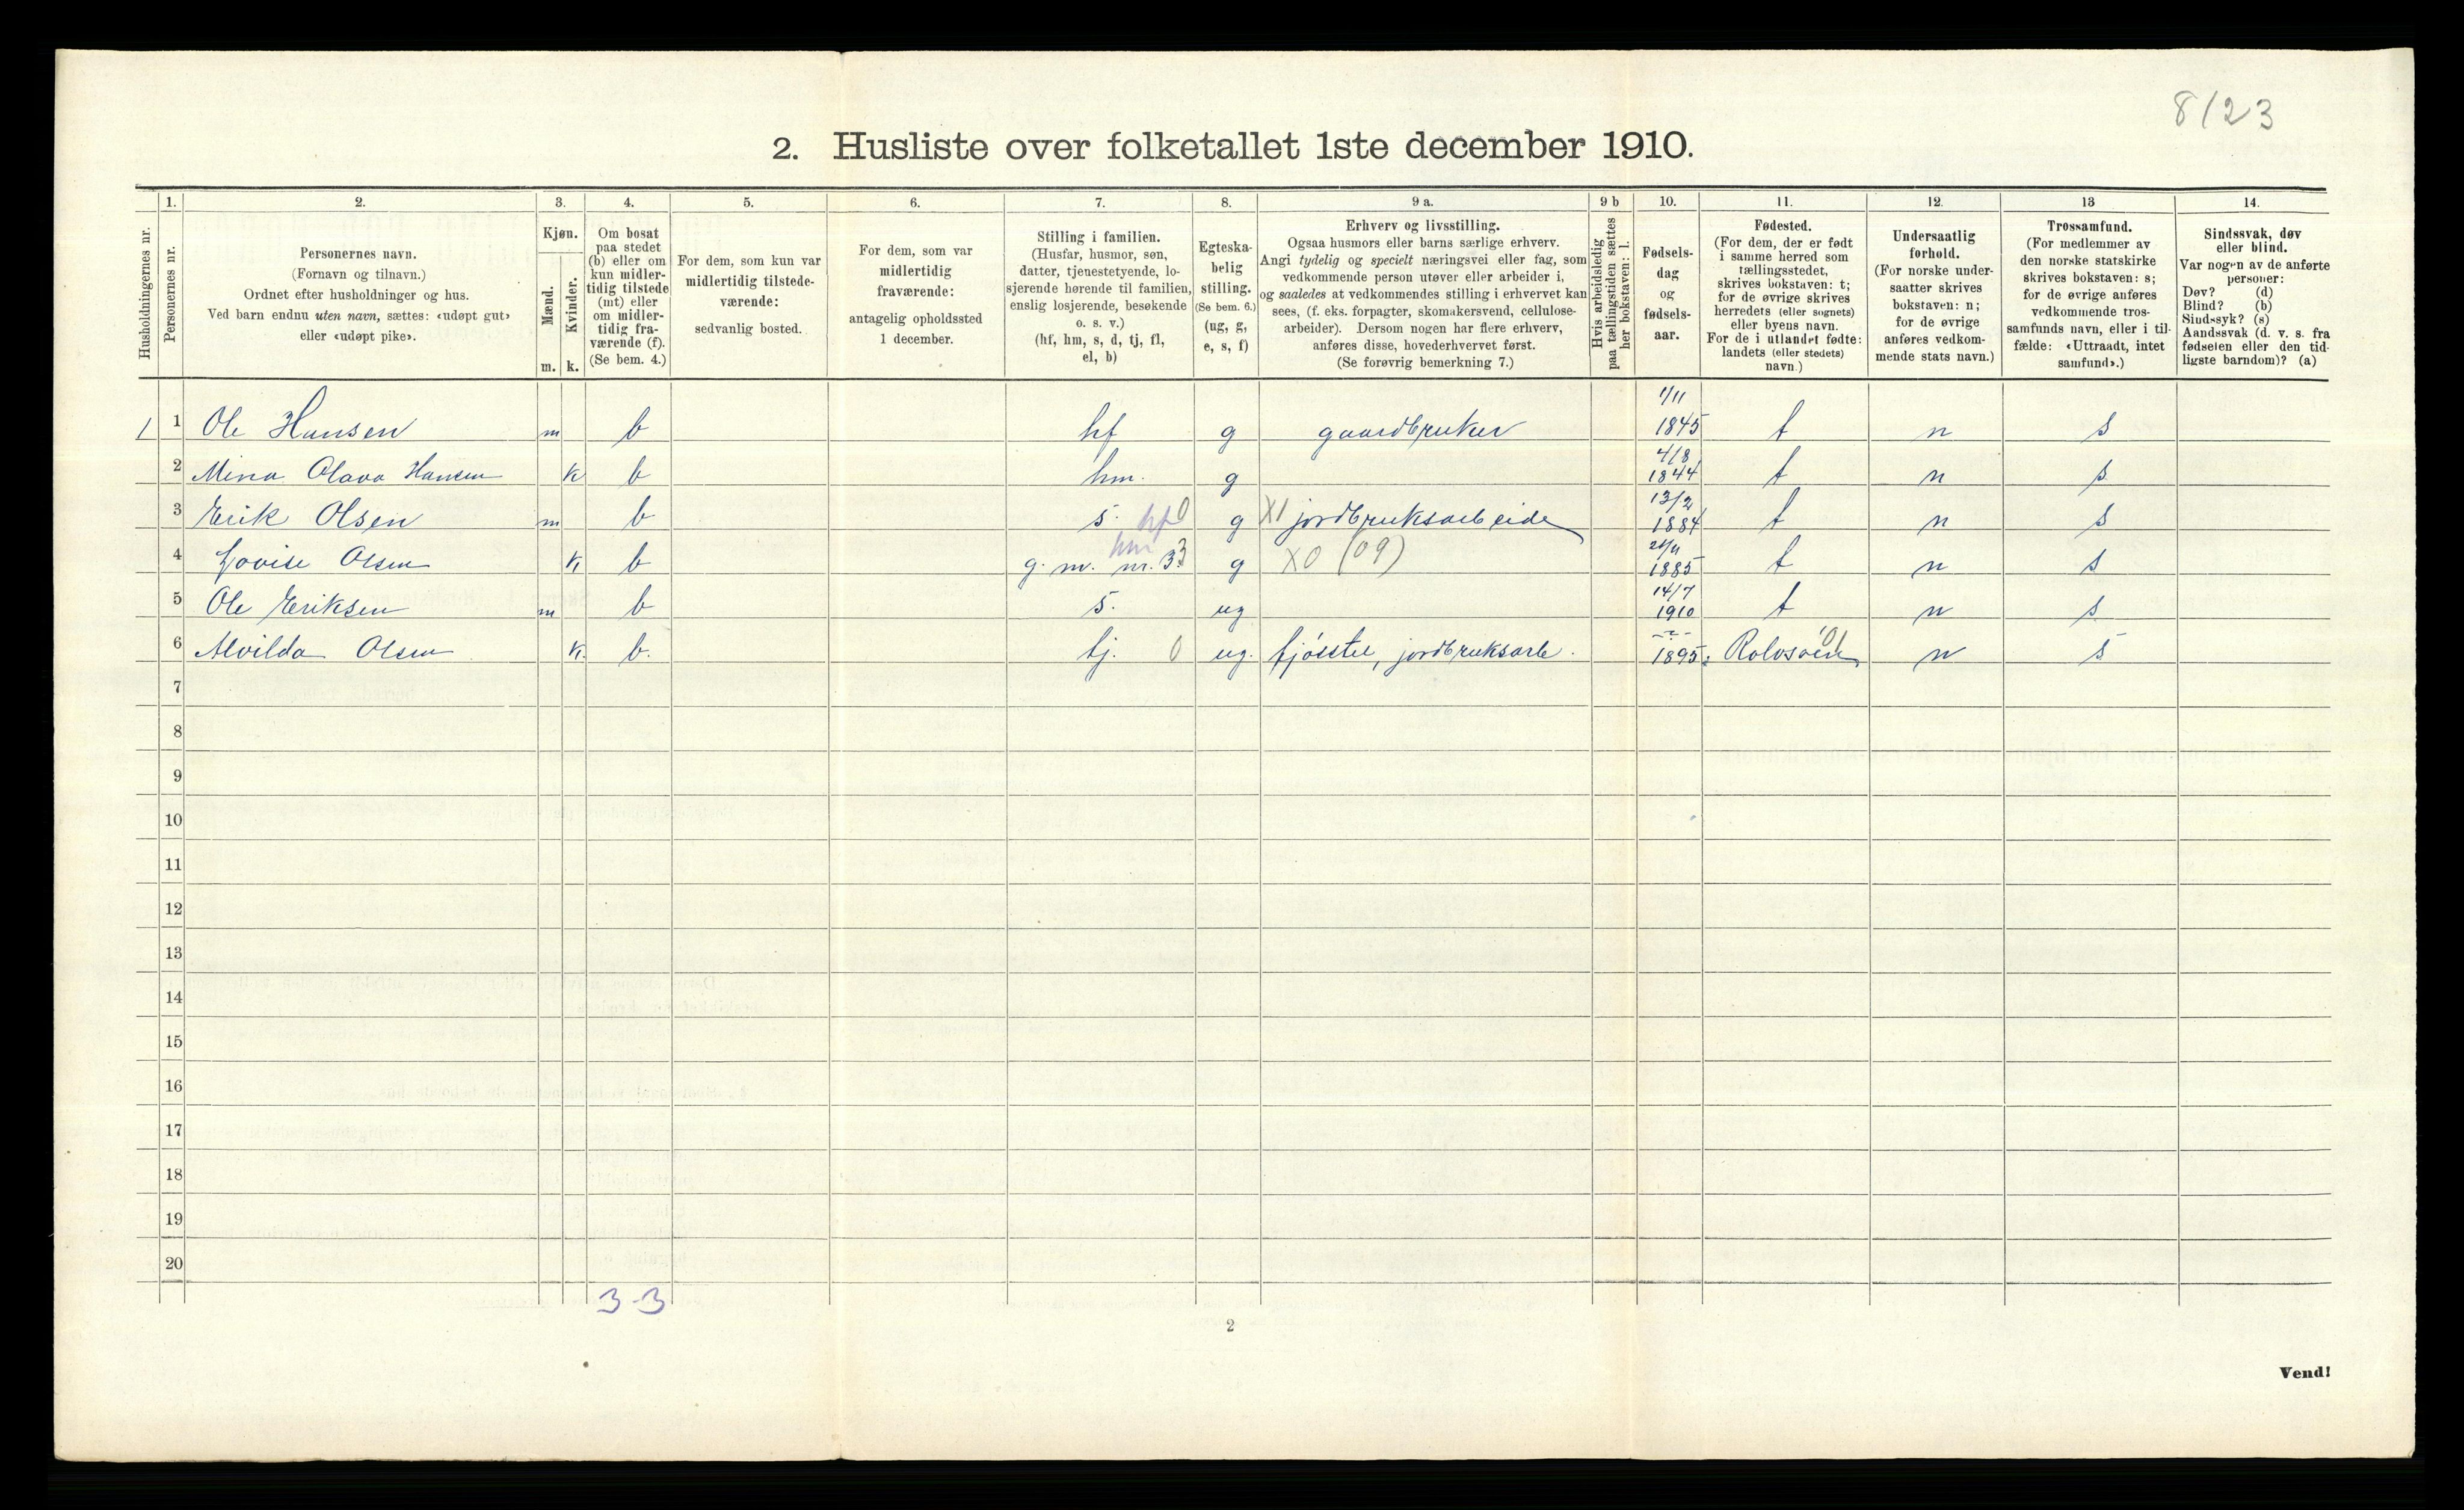 8/23
2. Husliste over folketallet 1ste december 1910.
Husholdningernes nr.
1.
Personernes nr.
2.
Personernes navn.
(Fornavn og tilnavn.)
Ordnet efter husholdninger og hus.
Ved barn endnu uten navn, sættes: «udøpt gut»
eller «udøpt pike».
3.
Kjøn.
Mænd.
Kvinder.
m. k.
4.
Om bosat
paa stedet
(b) eller om
kun midler-
tidig tilstede
(mt) eller
om midler-
tidig fra-
værende (f).
(Se bem. 4.)
5.
For dem, som kun var
midlertidig tilstede-
værende:
sedvanlig bosted.
6.
For dem, som var
midlertidig
fraværende:
antagelig opholdssted
1 december.
7.
Stilling i familien.
(Husfar, husmor, søn,
datter, tjenestetyende, lo-
sjerende hørende til familien,
enslig losjerende, besøkende
o. s. v.)
(hf, hm, s, d, tj, fl,
el, b)
8.
Egteska-
belig
stilling.
(Se bem. 6.)
(ug, g,
e, s, f)
9 a.
Erhverv og livsstilling.
Ogsaa husmors eller barns særlige erhverv.
Angi tydelig og specielt næringsvei eller fag, som
vedkommende person utøver eller arbeider i,
og saaledes at vedkommendes stilling i erhvervet kan
sees, (f. eks. forpagter, skomakersvend, cellulose-
arbeider). Dersom nogen har flere erhverv,
anføres disse, hovederhvervet først.
(Se forøvrig bemerkning 7.)
9 b
Hvis arbeidsledig
paa tællingstiden sættes
her bokstaven: l.
10.
Fødsels-
dag
og
fødsels-
aar.
11.
Fødested.
(For dem, der er født
i samme herred som
tællingsstedet,
skrives bokstaven: t;
for de øvrige skrives
herredets (eller sognets)
eller byens navn.
For de i utlandet fødte:
landets (eller stedets)
navn.)
12.
Undersaatlig
forhold.
(For norske under-
saatter skrives
bokstaven: n;
for de øvrige
anføres vedkom-
mende stats navn.)
13
Trossamfund.
(For medlemmer av
den norske statskirke
skrives bokstaven: s;
for de øvrige anføres
vedkommende tros-
samfunds navn, eller i til-
fælde: «Uttraadt, intet
samfund».)
14.
Sindssvak, døv
eller blind.
Var nogen av de anførte
personer:
Døv? (d)
Blind? (b)
Sindssyk? (s)
Aandssvak (d. v. s. fra
fødselen eller den tid-
ligste barndom)? (a)
1 1 Ole Hansen m b hf g gaardbruker 1/11 1845 t n s
2 Mina Olava Hansen k b hm. g 4/8 1844 t n s.
3 Erik Olsen m b s. hf 0 g X1 jordbruksarbeide 13/2 1884 t n s
4 Lovise Olsen k b g. m. nr. 3. hm 3 g X0 (09) 1885 t n s
5 Ole Eriksen m b s. ug 14/7 1910 t n s
6 Alvilda Olsen k. b. tj. 0 ug. fjøsstel, jordbruksarb. 1895 Rolvsøen 01 n s
7
8
9
10
11
12
13
14
15
16
17
18
19
20
3-3
2
Vend!